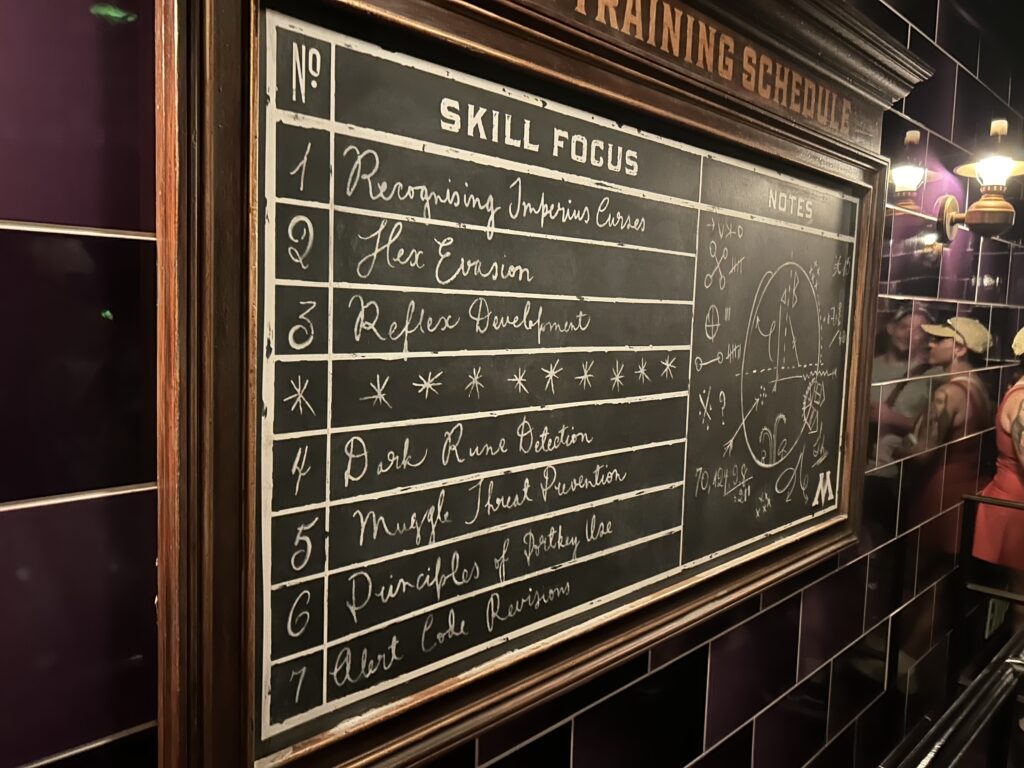 TRAINING SCHEDULE
Nº SKILL FOCUS NOTES
1 Recognising Imperius Curses
2 Hex Evasion
3 Reflex Development
4 Dark Rune Detection
5 Muggle Threat Prevention
6 Principles of Portkey Use
7 Alert Code Revisions
?
M